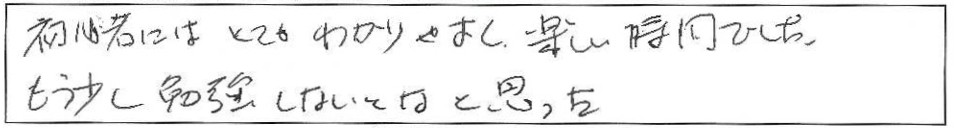 初心者には とても わかりやすく、楽しい 時間でした。
もう少し 勉強 しないとな と思った